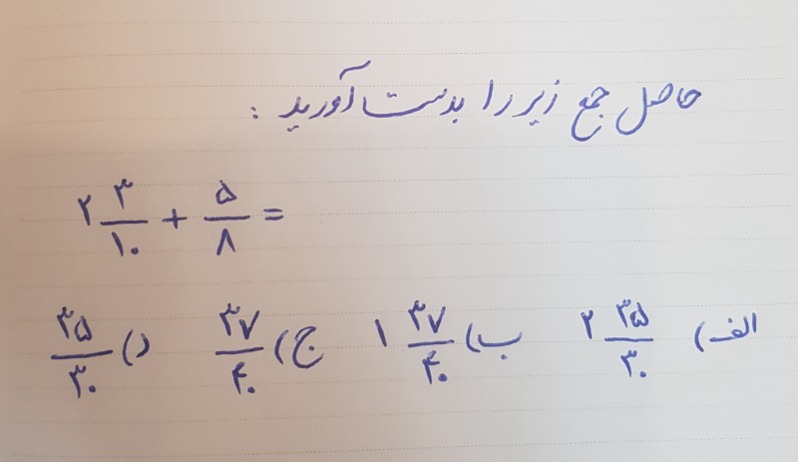 حاصل جمع زیر را بدست آورید :
۲ ۳/۱۰ + ۵/۸ =
الف) ۲ ۳۵/۳۰ ب) ۱ ۳۷/۴۰ ج) ۳۷/۴۰ د) ۳۵/۳۰